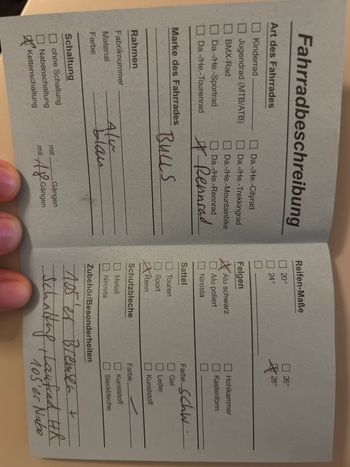 Fahrradbeschreibung
Art des Fahrrades
☐ Kinderrad
☐ Jugendrad (MTB/ATB)
☐ BMX-Rad
☐ Da.-/He.-Sportrad
☐ Da.-/He.-Tourenrad
☐ Da.-/He.-Cityrad
☐ Da.-/He.-Trekkingrad
☐ Da.-/He.-Mountainbike
☐ Da.-/He.-Rennrad
☒ Rennrad
Marke des Fahrrades
BULLS
Rahmen
Fabriknummer
Material Alu
Farbe blau
Schaltung
☐ ohne Schaltung
☐ Nabenschaltung mit Gängen
☒ Kettenschaltung mit 18 Gängen
Reifen-Maße
☐ 20" ☐ 26"
☐ 24" ☒ 28"
☐
Felgen
☒ Alu schwarz ☐ Hohlkammer
☐ Alu poliert ☐ Kastenform
☐ Nirosta ☐
Sattel Farbe: schw.
☐ Touren ☐ Gel
☐ Sport ☐ Leder
☒ Renn ☐ Kunststoff
Schutzbleche Farbe:
☐ Metall ☐ Kunststoff
☐ Nirosta ☐ Steckbleche
Zubehör/Besonderheiten
105'er Bremsen +
Schaltung, Laufrad HR
105'er Nabe